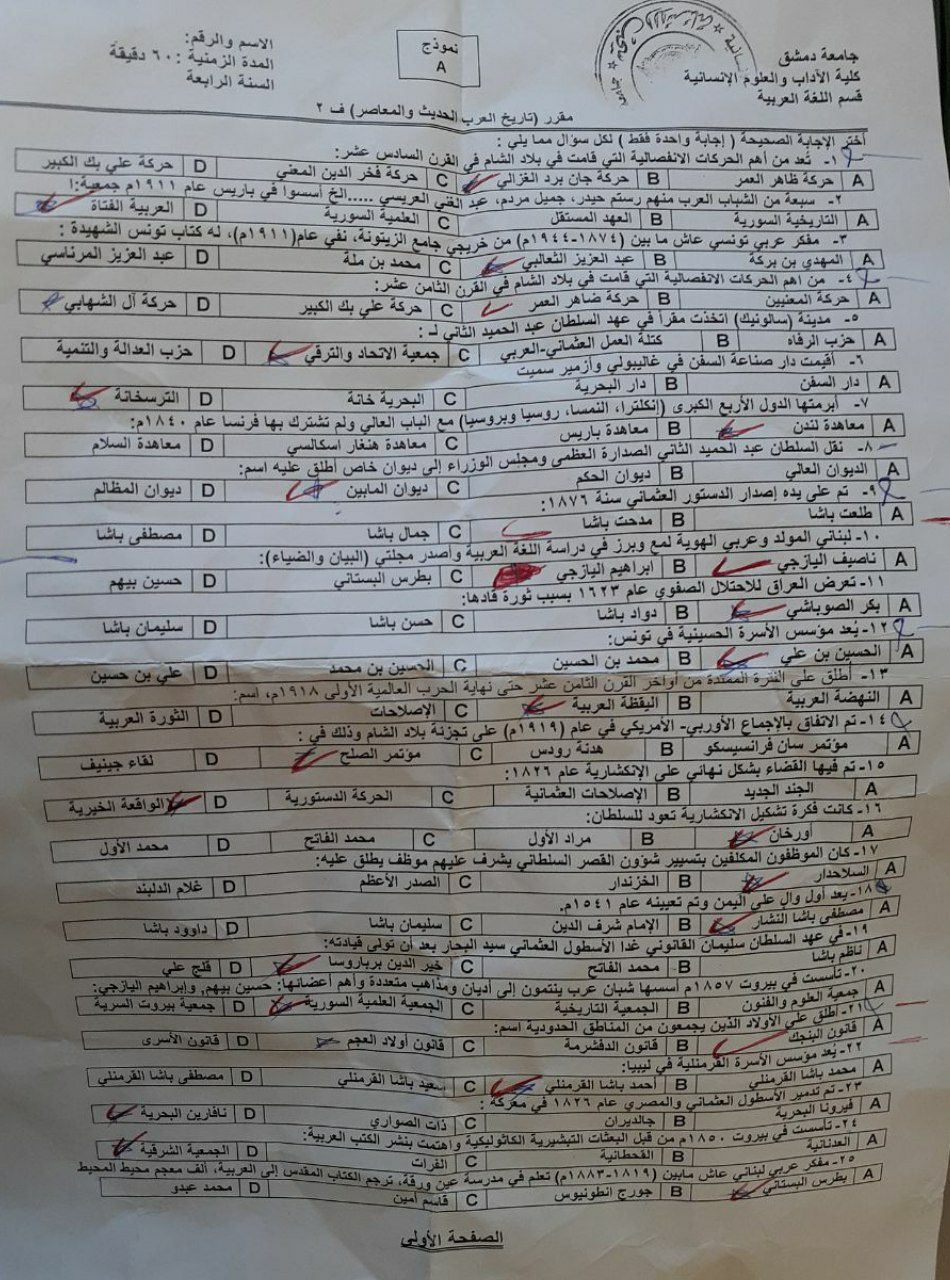 جامعة دمشق
كلية الآداب والعلوم الإنسانية
قسم اللغة العربية
نموذج
A
الاسم والرقم:
المدة الزمنية : ٦٠ دقيقة
السنة الرابعة
مقرر (تاريخ العرب الحديث والمعاصر) ف ٢
أختر الإجابة الصحيحة ( إجابة واحدة فقط ) لكل سؤال مما يلي :
١- تُعد من أهم الحركات الانفصالية التي قامت في بلاد الشام في القرن السادس عشر:
A حركة ظاهر العمر B حركة جان برد الغزالي C حركة فخر الدين المعني D حركة علي بك الكبير
٢- سبعة من الشباب العرب منهم رستم حيدر، جميل مردم، عبد الغني العريسي .....الخ أسسوا في باريس عام ١٩١١م جمعية:
A التاريخية السورية B العهد المستقل C العلمية السورية D العربية الفتاة
٣- مفكر عربي تونسي عاش ما بين (١٨٧٤-١٩٤٤م) من خريجي جامع الزيتونة، نفي عام(١٩١١م)، له كتاب تونس الشهيدة :
A المهدي بن بركة B عبد العزيز الثعالبي C محمد بن ملة D عبد العزيز المرناسي
٤- من اهم الحركات الانفصالية التي قامت في بلاد الشام في القرن الثامن عشر:
A حركة المعنيين B حركة ضاهر العمر C حركة علي بك الكبير D حركة آل الشهابي
٥- مدينة (سالونيك) اتخذت مقراً في عهد السلطان عبد الحميد الثاني لـ :
A حزب الرفاه B كتلة العمل العثماني-العربي C جمعية الاتحاد والترقي D حزب العدالة والتنمية
٦- أقيمت دار صناعة السفن في غاليبولي وأزمير سميت
A دار السفن B دار البحرية C البحرية خانة D الترسخانة
٧- أبرمتها الدول الأربع الكبرى (إنكلترا، النمسا، روسيا وبروسيا) مع الباب العالي ولم تشترك بها فرنسا عام ١٨٤٠م:
A معاهدة لندن B معاهدة باريس C معاهدة هنغار اسكالسي D معاهدة السلام
٨- نقل السلطان عبد الحميد الثاني الصدارة العظمى ومجلس الوزراء إلى ديوان خاص أطلق عليه اسم:
A الديوان العالي B ديوان الحكم C ديوان المابين D ديوان المظالم
٩- تم على يده إصدار الدستور العثماني سنة ١٨٧٦:
A طلعت باشا B مدحت باشا C جمال باشا D مصطفى باشا
١٠- لبناني المولد وعربي الهوية لمع وبرز في دراسة اللغة العربية وأصدر مجلتي (البيان والضياء):
A ناصيف اليازجي B ابراهيم اليازجي C بطرس البستاني D حسين بيهم
١١- تعرض العراق للاحتلال الصفوي عام ١٦٢٣ بسبب ثورة قادها:
A بكر الصوباشي B دواد باشا C حسن باشا D سليمان باشا
١٢- يُعد مؤسس الأسرة الحسينية في تونس:
A الحسين بن علي B محمد بن الحسين C الحسين بن محمد D علي بن حسين
١٣- أطلق على الفترة الممتدة من أواخر القرن الثامن عشر حتى نهاية الحرب العالمية الأولى ١٩١٨م، اسم:
A النهضة العربية B اليقظة العربية C الإصلاحات D الثورة العربية
١٤- تم الاتفاق بالإجماع الأوربي- الأمريكي في عام (١٩١٩م) على تجزئة بلاد الشام وذلك في :
A مؤتمر سان فرانسيسكو B هدنة رودس C مؤتمر الصلح D لقاء جينيف
١٥- تم فيها القضاء بشكل نهاني على الإنكشارية عام ١٨٢٦:
A الجند الجديد B الإصلاحات العثمانية C الحركة الدستورية D الواقعة الخيرية
١٦- كانت فكرة تشكيل الانكشارية تعود للسلطان:
A أورخان B مراد الأول C محمد الفاتح D محمد الأول
١٧- كان الموظفون المكلفين بتسيير شؤون القصر السلطاني يشرف عليهم موظف يطلق عليه:
A السلاحدار B الخزندار C الصدر الأعظم D غلام الدلبند
١٨- يعد أول وال على اليمن وتم تعيينه عام ١٥٤١م.
A مصطفى باشا النشار B الإمام شرف الدين C سليمان باشا D داوود باشا
١٩- في عهد السلطان سليمان القانوني غدا الأسطول العثماني سيد البحار بعد أن تولى قيادته:
A ناظم باشا B محمد الفاتح C خير الدين برباروسا D قلج علي
٢٠- تأسست في بيروت ١٨٥٧م أسسها شبان عرب ينتمون إلى أديان ومذاهب متعددة وأهم أعضائها: حسين بيهم, وإبراهيم اليازجي:
A جمعية العلوم والفنون B الجمعية التاريخية C الجمعية العلمية السورية D جمعية بيروت السرية
٢١- أطلق على الأولاد الذين يجمعون من المناطق الحدودية اسم:
A قانون البنجك B قانون الدفشرمة C قانون أولاد العجم D قانون الأسرى
٢٢- يُعد مؤسس الأسرة القرمنلية في ليبيا:
A محمد باشا القرمنلي B أحمد باشا القرمنلي C سعيد باشا القرمنلي D مصطفى باشا القرمنلي
٢٣- تم تدمير الأسطول العثماني والمصري عام ١٨٢٦ في معركة :
A فيرونا البحرية B جالديران C ذات الصواري D نافارين البحرية
٢٤- تأسست في بيروت ١٨٥٠م من قبل البعثات التبشيرية الكاثوليكية واهتمت بنشر الكتب العربية:
A العدنانية B القحطانية C الفرات D الجمعية الشرقية
٢٥- مفكر عربي لبناني عاش مابين (١٨١٩-١٨٨٣م) تعلم في مدرسة عين ورقة، ترجم الكتاب المقدس إلى العربية، ألف معجم محيط المحيط
A بطرس البستاني B جورج انطونيوس C قاسم أمين D محمد عبدو
الصفحة الأولى